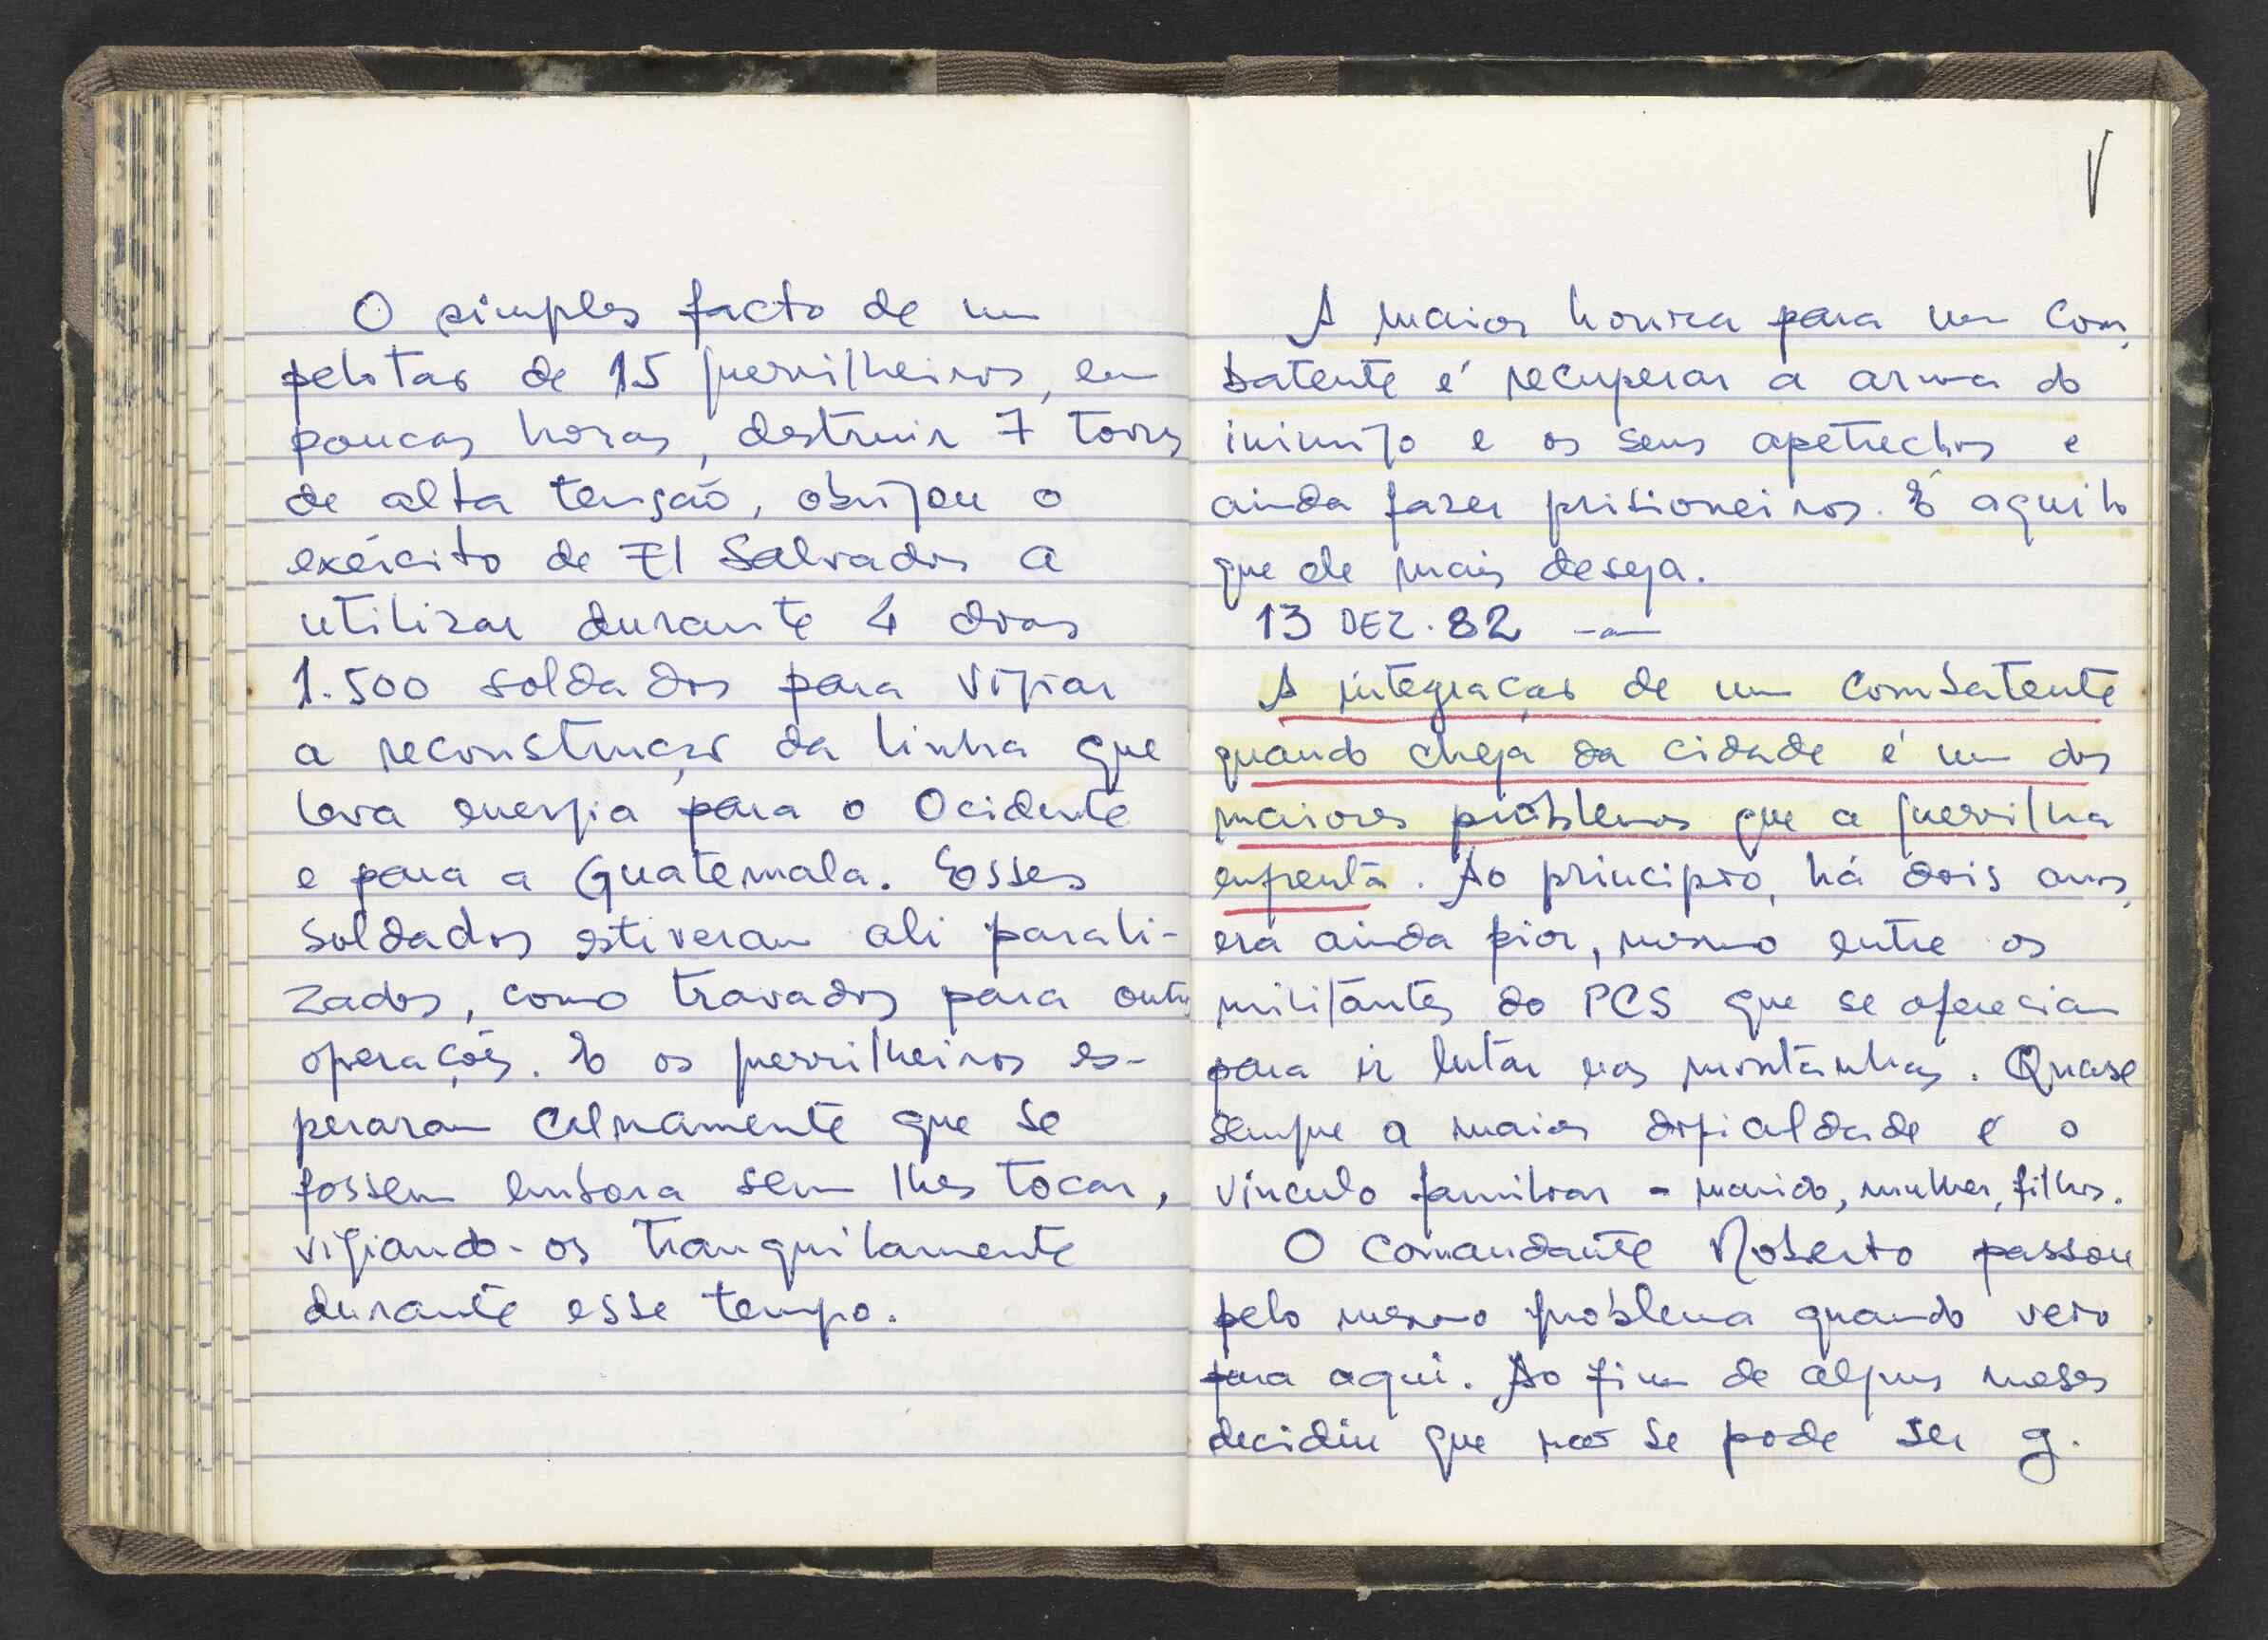 O simples facto de um
pelotão de 15 guerrilheiros, em
poucas horas, destruir 7 torres
de alta tensão, obrigou o
exército de El Salvador a
utilizar durante 4 dias
1.500 soldados para vigiar
a reconstrução da linha que
leva energia para o Ocidente
e para a Guatemala. Esses
soldados estiveram ali parali-
zados, como travados para outras
operações. E os guerrilheiros es-
peraram calmamente que se
fossem embora sem lhes tocar,
vigiando-os tranquilamente
durante esse tempo.
V
A maior honra para um com-
batente é recuperar a arma do
inimigo e os seus apetrechos e
ainda fazer prisioneiros. É aquilo
que ele mais deseja.
13 DEZ. 82
A integração de um combatente
quando chega da cidade é um dos
maiores problemas que a guerrilha
enfrenta. Ao princípio, há dois anos,
era ainda pior, mesmo entre os
militantes do PCS que se ofereciam
para ir lutar nas montanhas. Quase
sempre a maior dificuldade é o
vínculo familiar - marido, mulher, filhos.
O Comandante Roberto passou
pelo mesmo problema quando veio
para aqui. Ao fim de alguns meses
decidiu que não se pode ser g.